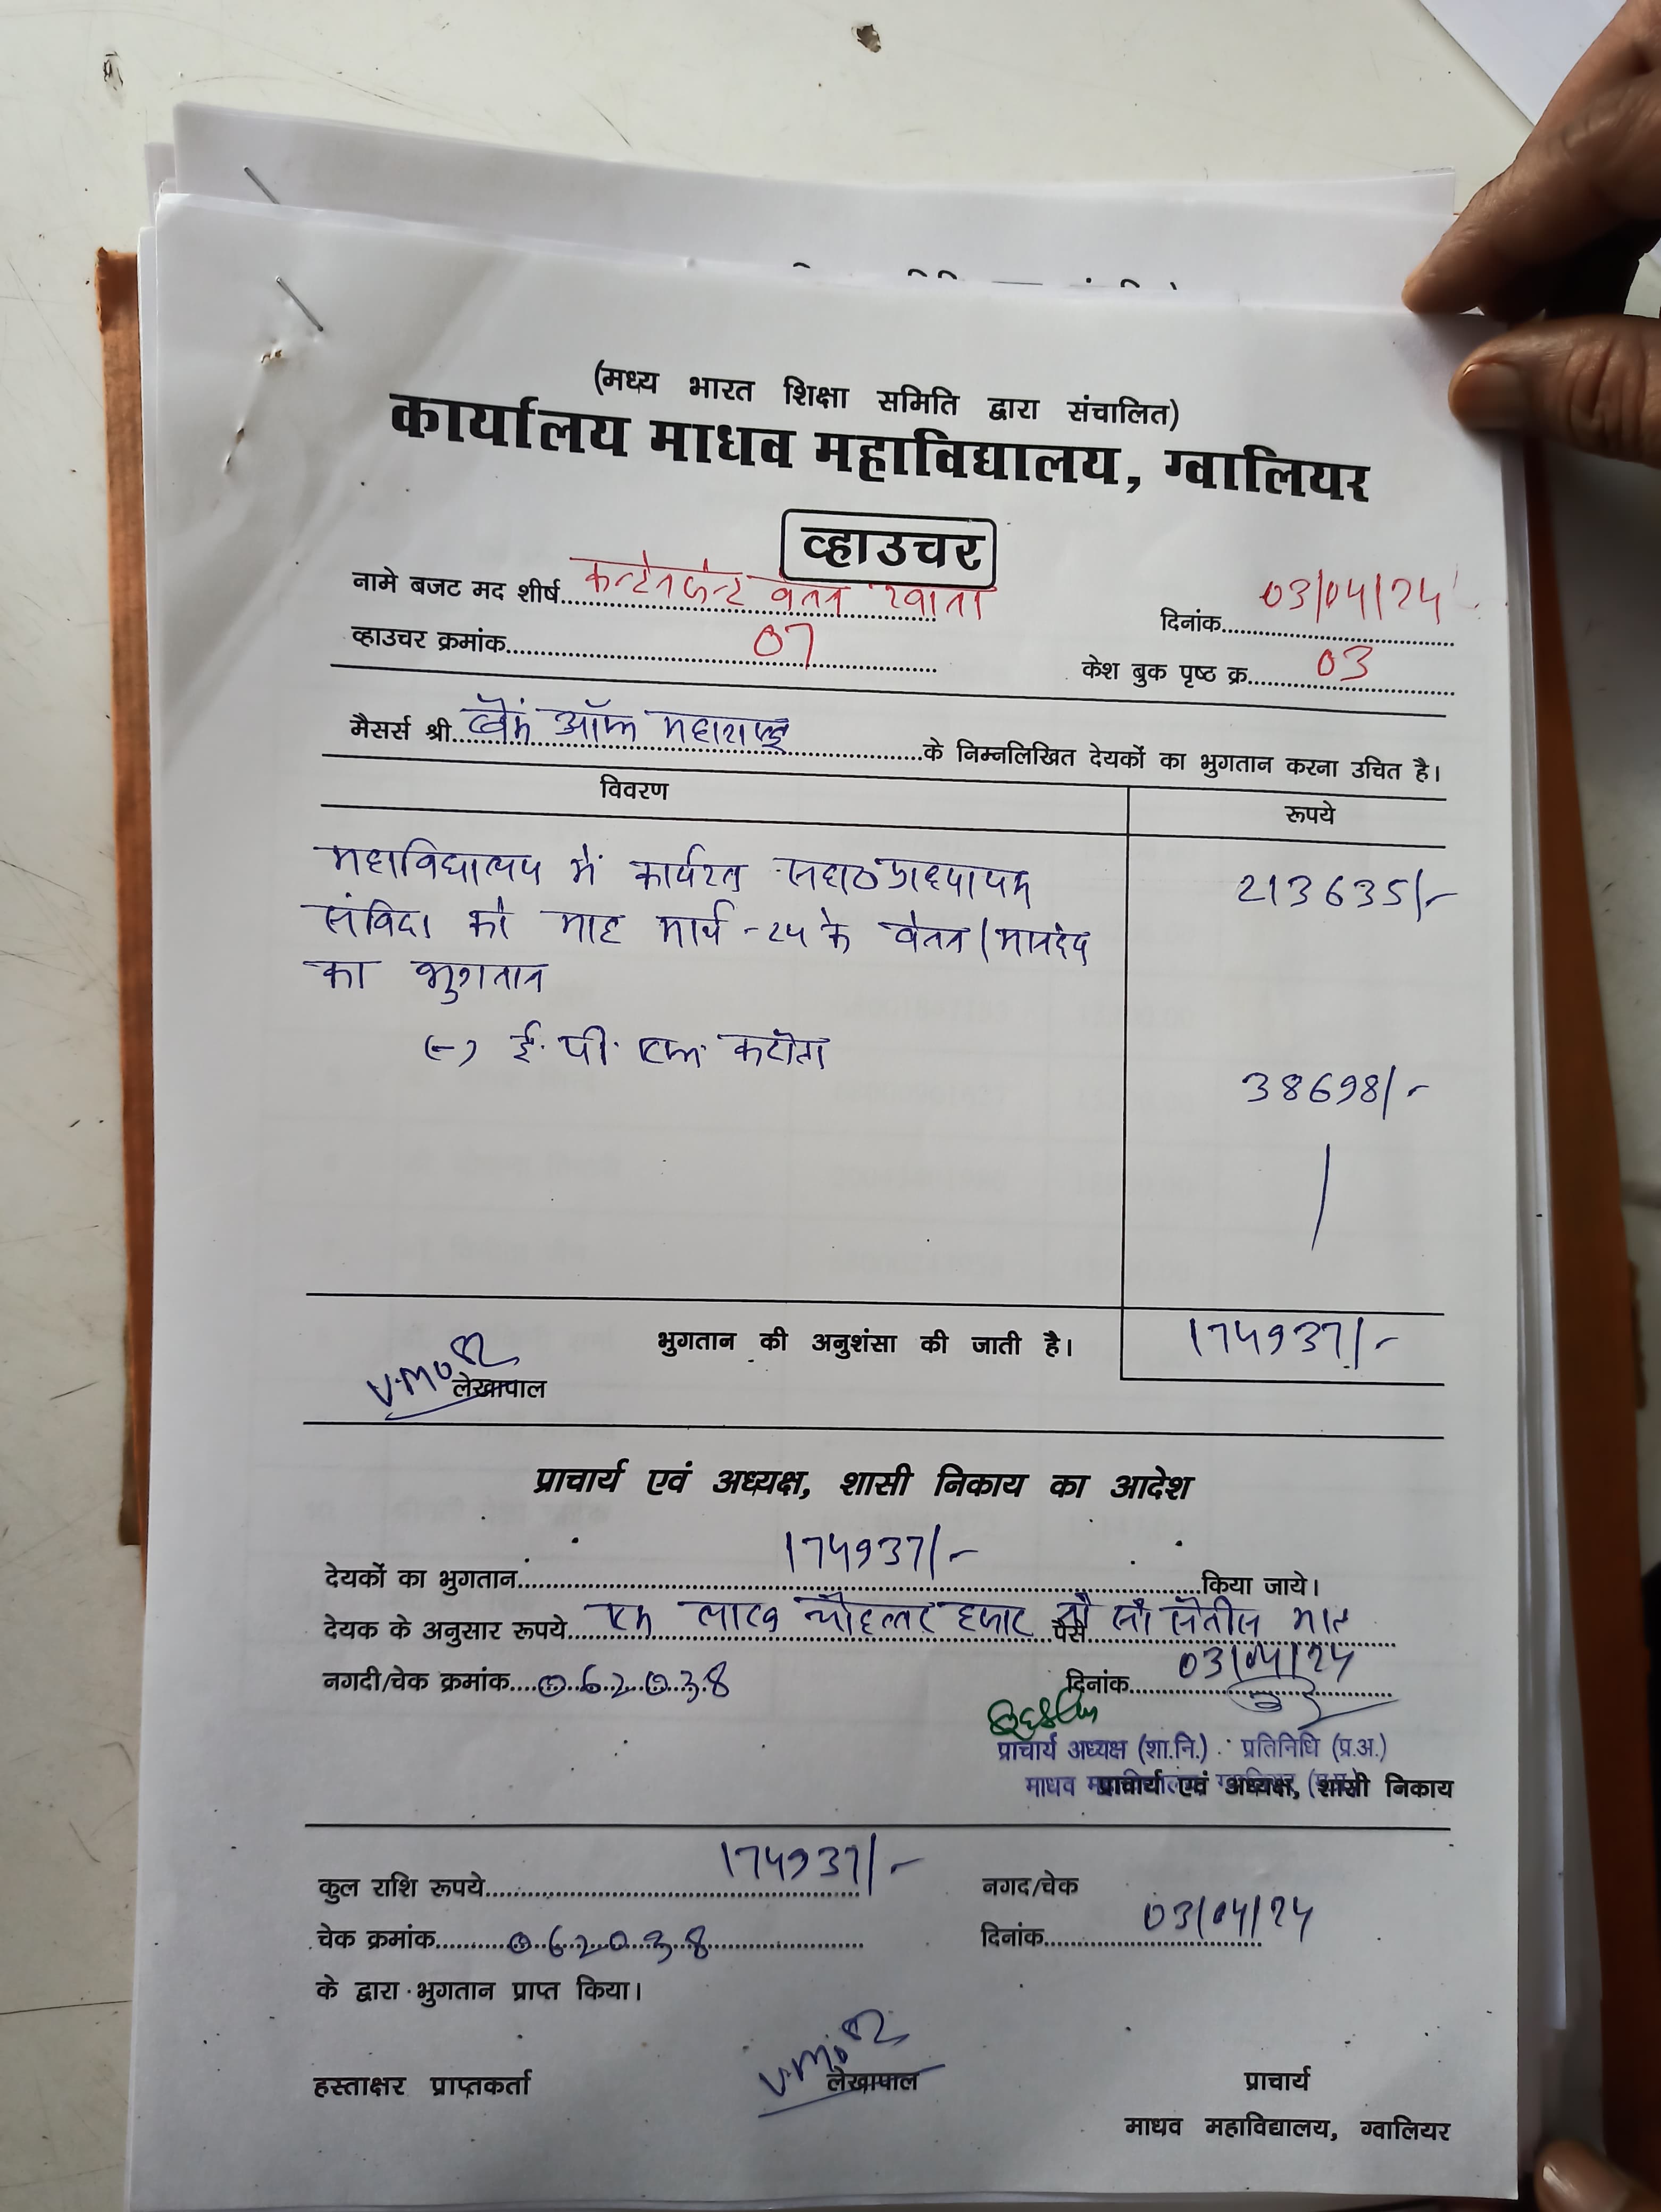 (मध्य भारत शिक्षा समिति द्वारा संचालित)
कार्यालय माधव महाविद्यालय, ग्वालियर
व्हाउचर
नामे बजट मद शीर्ष कन्टेनजेन्ट वेतन खाता
दिनांक 03/04/24
व्हाउचर क्रमांक 07
केश बुक पृष्ठ क्र. 03
मैसर्स श्री बैंक ऑफ महाराष्ट्र के निम्नलिखित देयकों का भुगतान करना उचित है।
विवरण रूपये
महाविद्यालय में कार्यरत सहा० प्राध्यापक 213635/-
संविदा को माह मार्च -24 के वेतन/मानदेय
का भुगतान
(-) ई. पी. एफ. कटौती 38698/-
भुगतान की अनुशंसा की जाती है। 174937/-
लेखापाल
प्राचार्य एवं अध्यक्ष, शासी निकाय का आदेश
देयकों का भुगतान 174937/- किया जाये।
देयक के अनुसार रूपये एक लाख चौहत्तर हजार नौ सौ सैंतीस मात्र पैसे
नगदी/चेक क्रमांक 062038 दिनांक 03/04/24
प्राचार्य अध्यक्ष (शा.नि.) प्रतिनिधि (प्र.अ.)
प्राचार्य एवं अध्यक्ष, शासी निकाय
कुल राशि रूपये 174937/- नगद/चेक
चेक क्रमांक 062038 दिनांक 03/04/24
के द्वारा भुगतान प्राप्त किया।
हस्ताक्षर प्राप्तकर्ता लेखापाल प्राचार्य
माधव महाविद्यालय, ग्वालियर